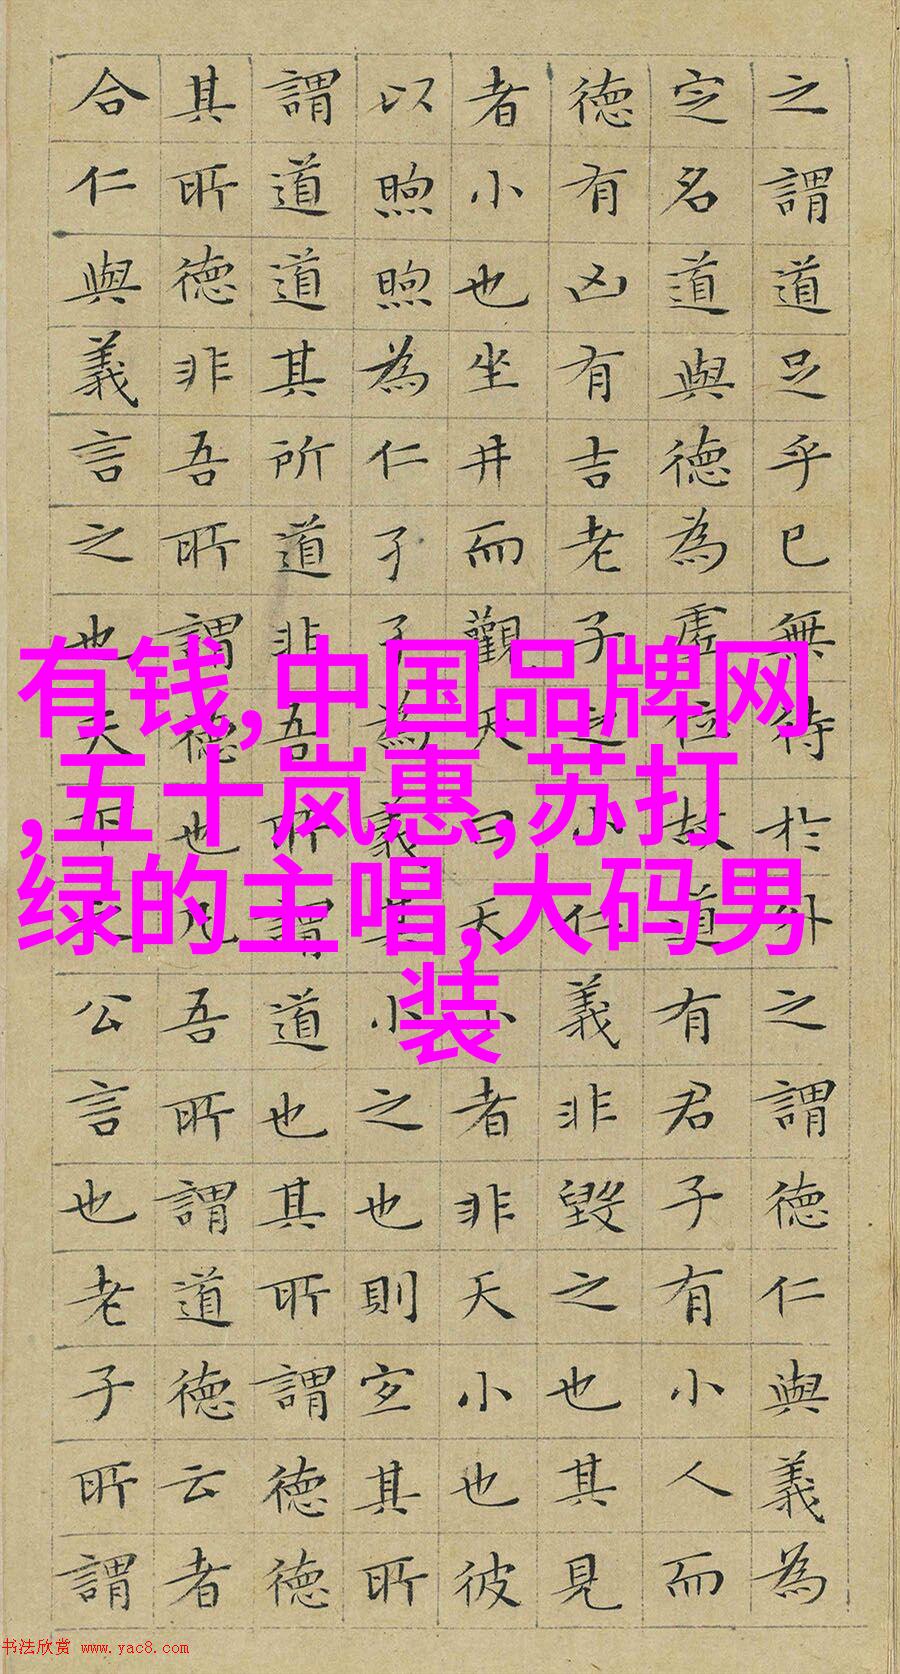 之謂道足乎已無待於外之謂德仁與義為
定名道與德為虛位故道有君子有小人而
德有凶有吉老子之小仁義非毀之也其見
者小也坐井而觀天曰天小者非天小也彼
以煦煦為仁孑孑為義其小之也則宜其所
謂道道其所道非吾所謂道也其所謂德德
其所德非吾所謂德也凡吾所謂道德云者
合仁與義言之也天下之公言也老子所謂
有钱,中国品牌网
,五十岚惠,苏打
绿的主唱,大码男
装
书法欣赏 www.yac8.com